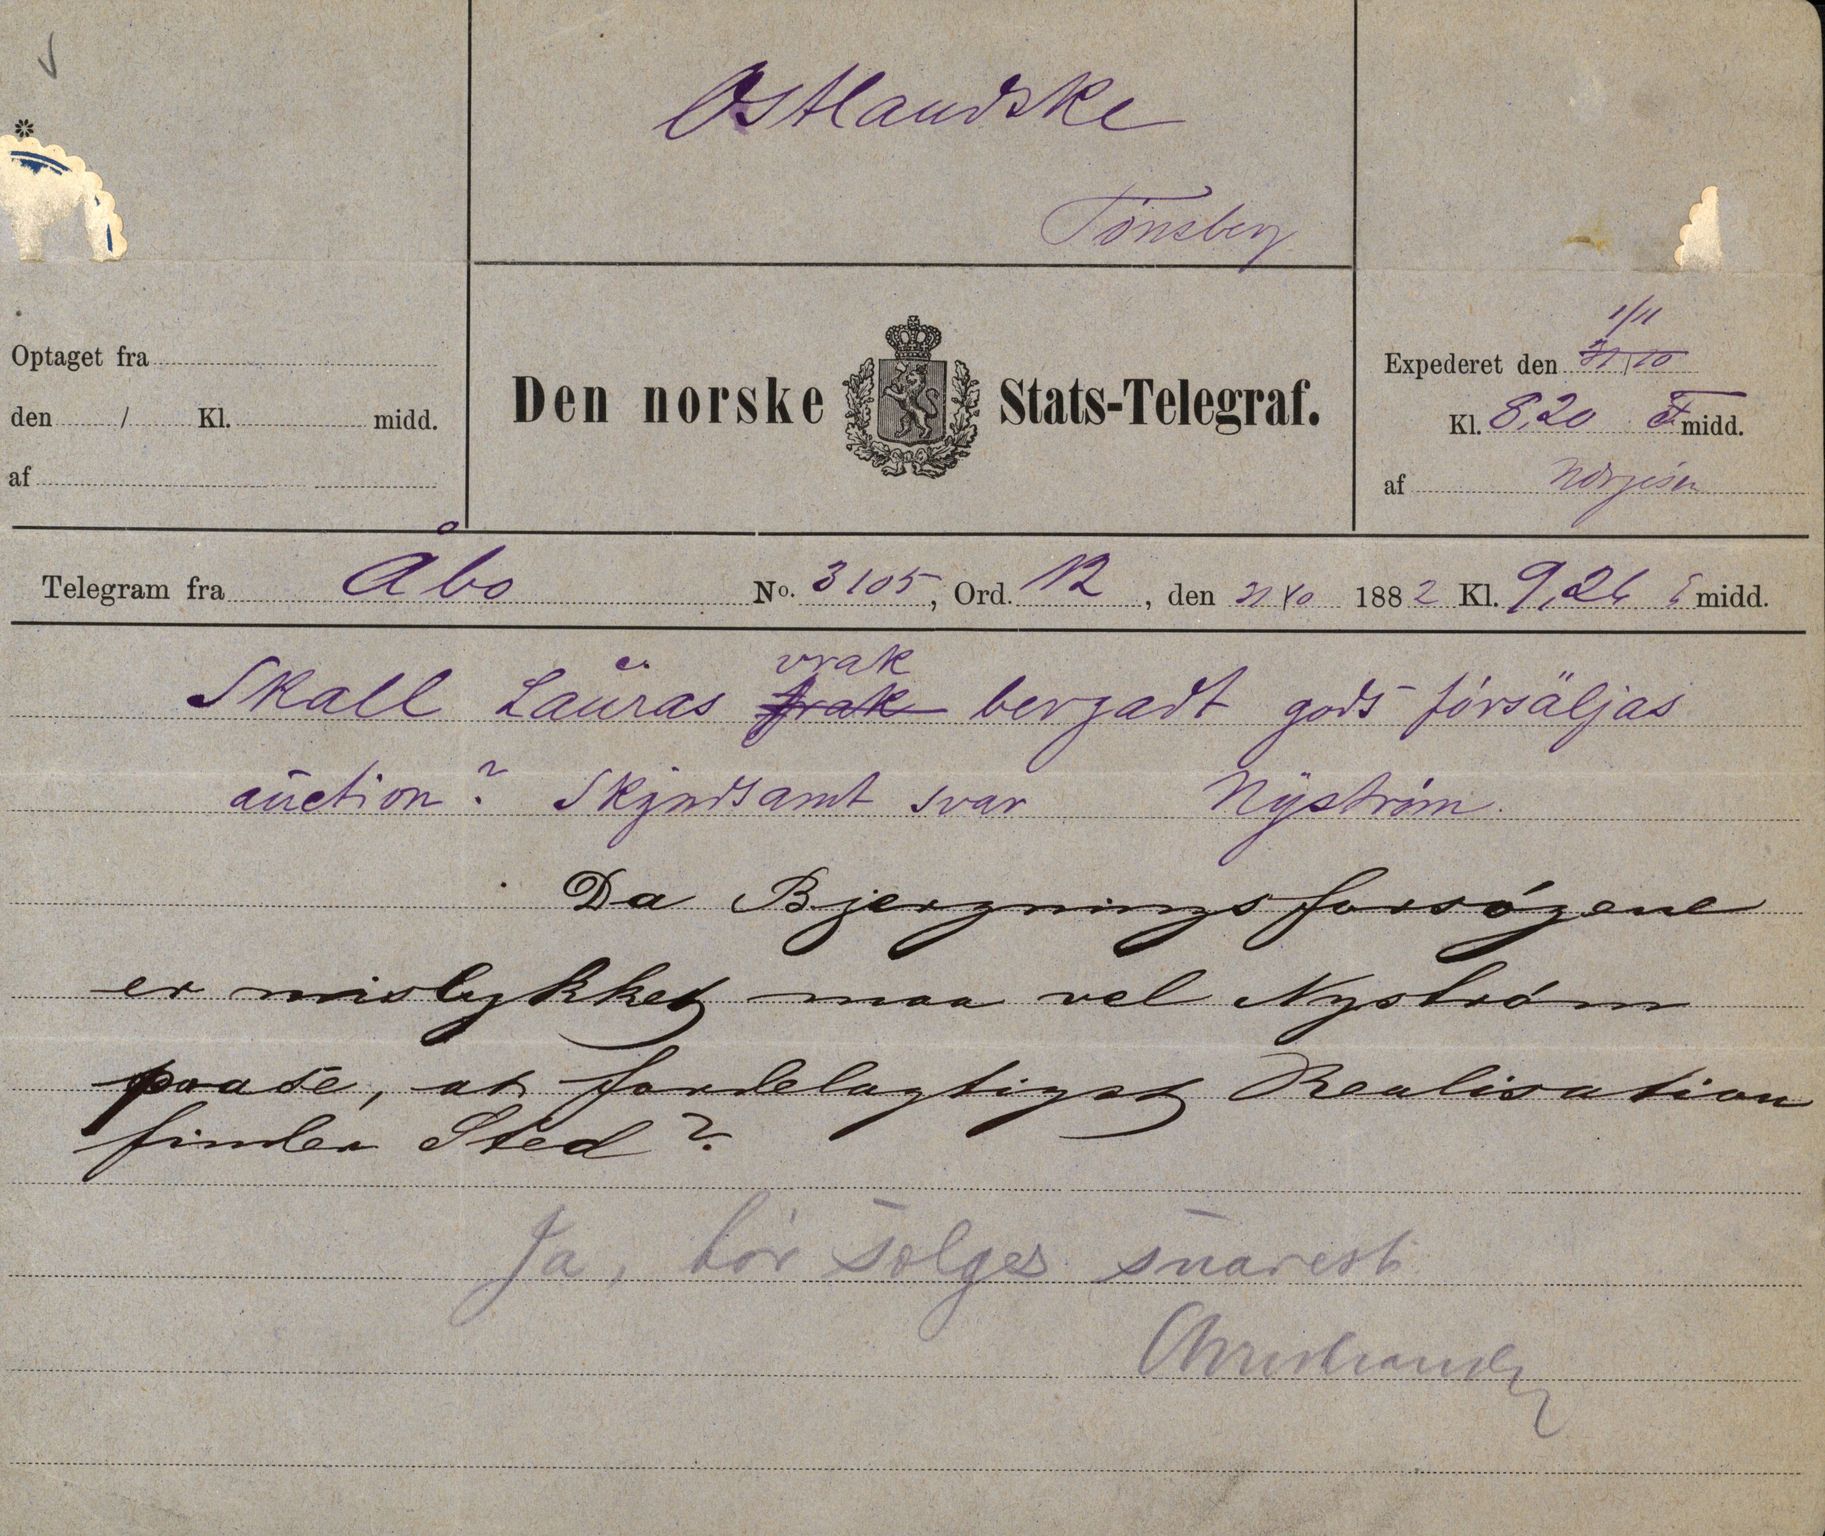 Ostlandske
Tönsberg
Optaget fra
den / Kl. midd.
af
Den norske Stats-Telegraf.
Expederet den 31/10 1/11
Kl. 8,20 F midd.
af
Telegram fra Åbo No. 3105, Ord. 12, den 31/10 1882 Kl. 9,26 E midd.
vrak
Skall Lauras frak bergadt gods försäljas
auction? Skyndsamt svar Nyström.
Da Bjergningsforsøgene
er mislykket maa vel Nystrøm
paase, at fordelagtigst Realisation
finder Sted?
Ja, bör sælges snarest